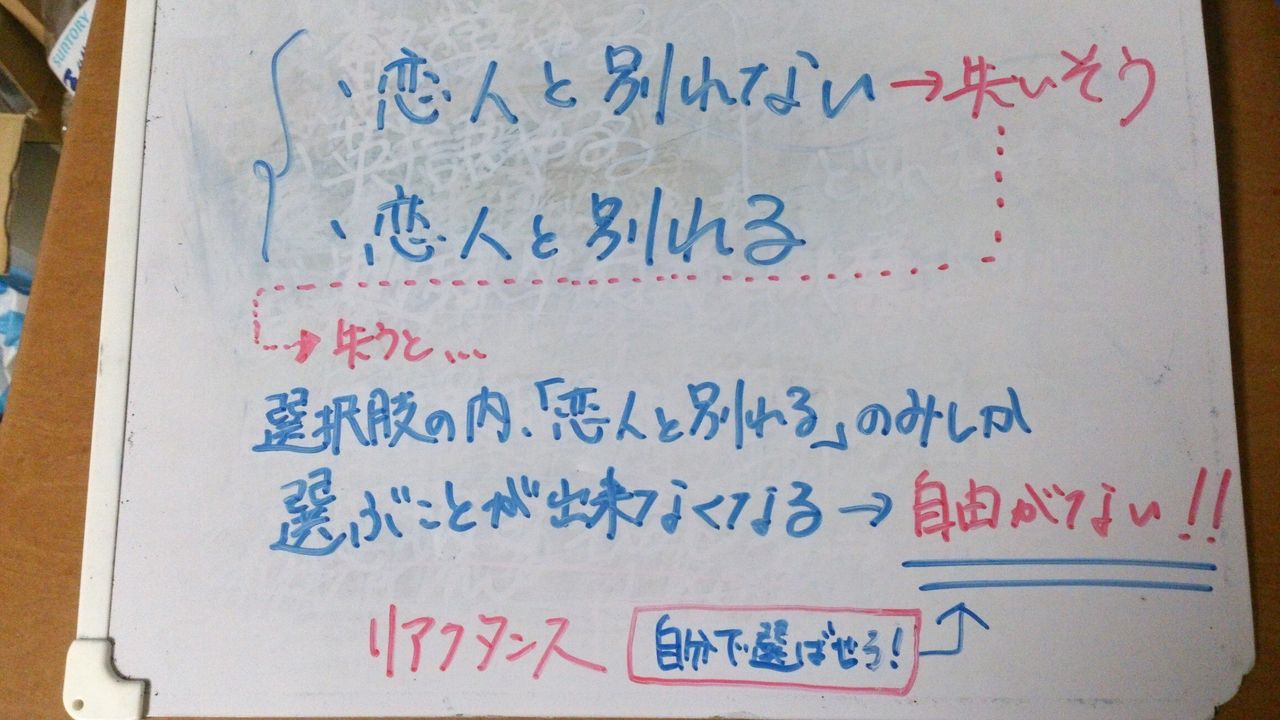 SUNTORY
・恋人と別れない→失いそう
・恋人と別れる
→失うと...
選択肢の内、「恋人と別れる」のみしか
選ぶことが出来なくなる→自由がない!!
リアクタンス 自分で選ばせろ!